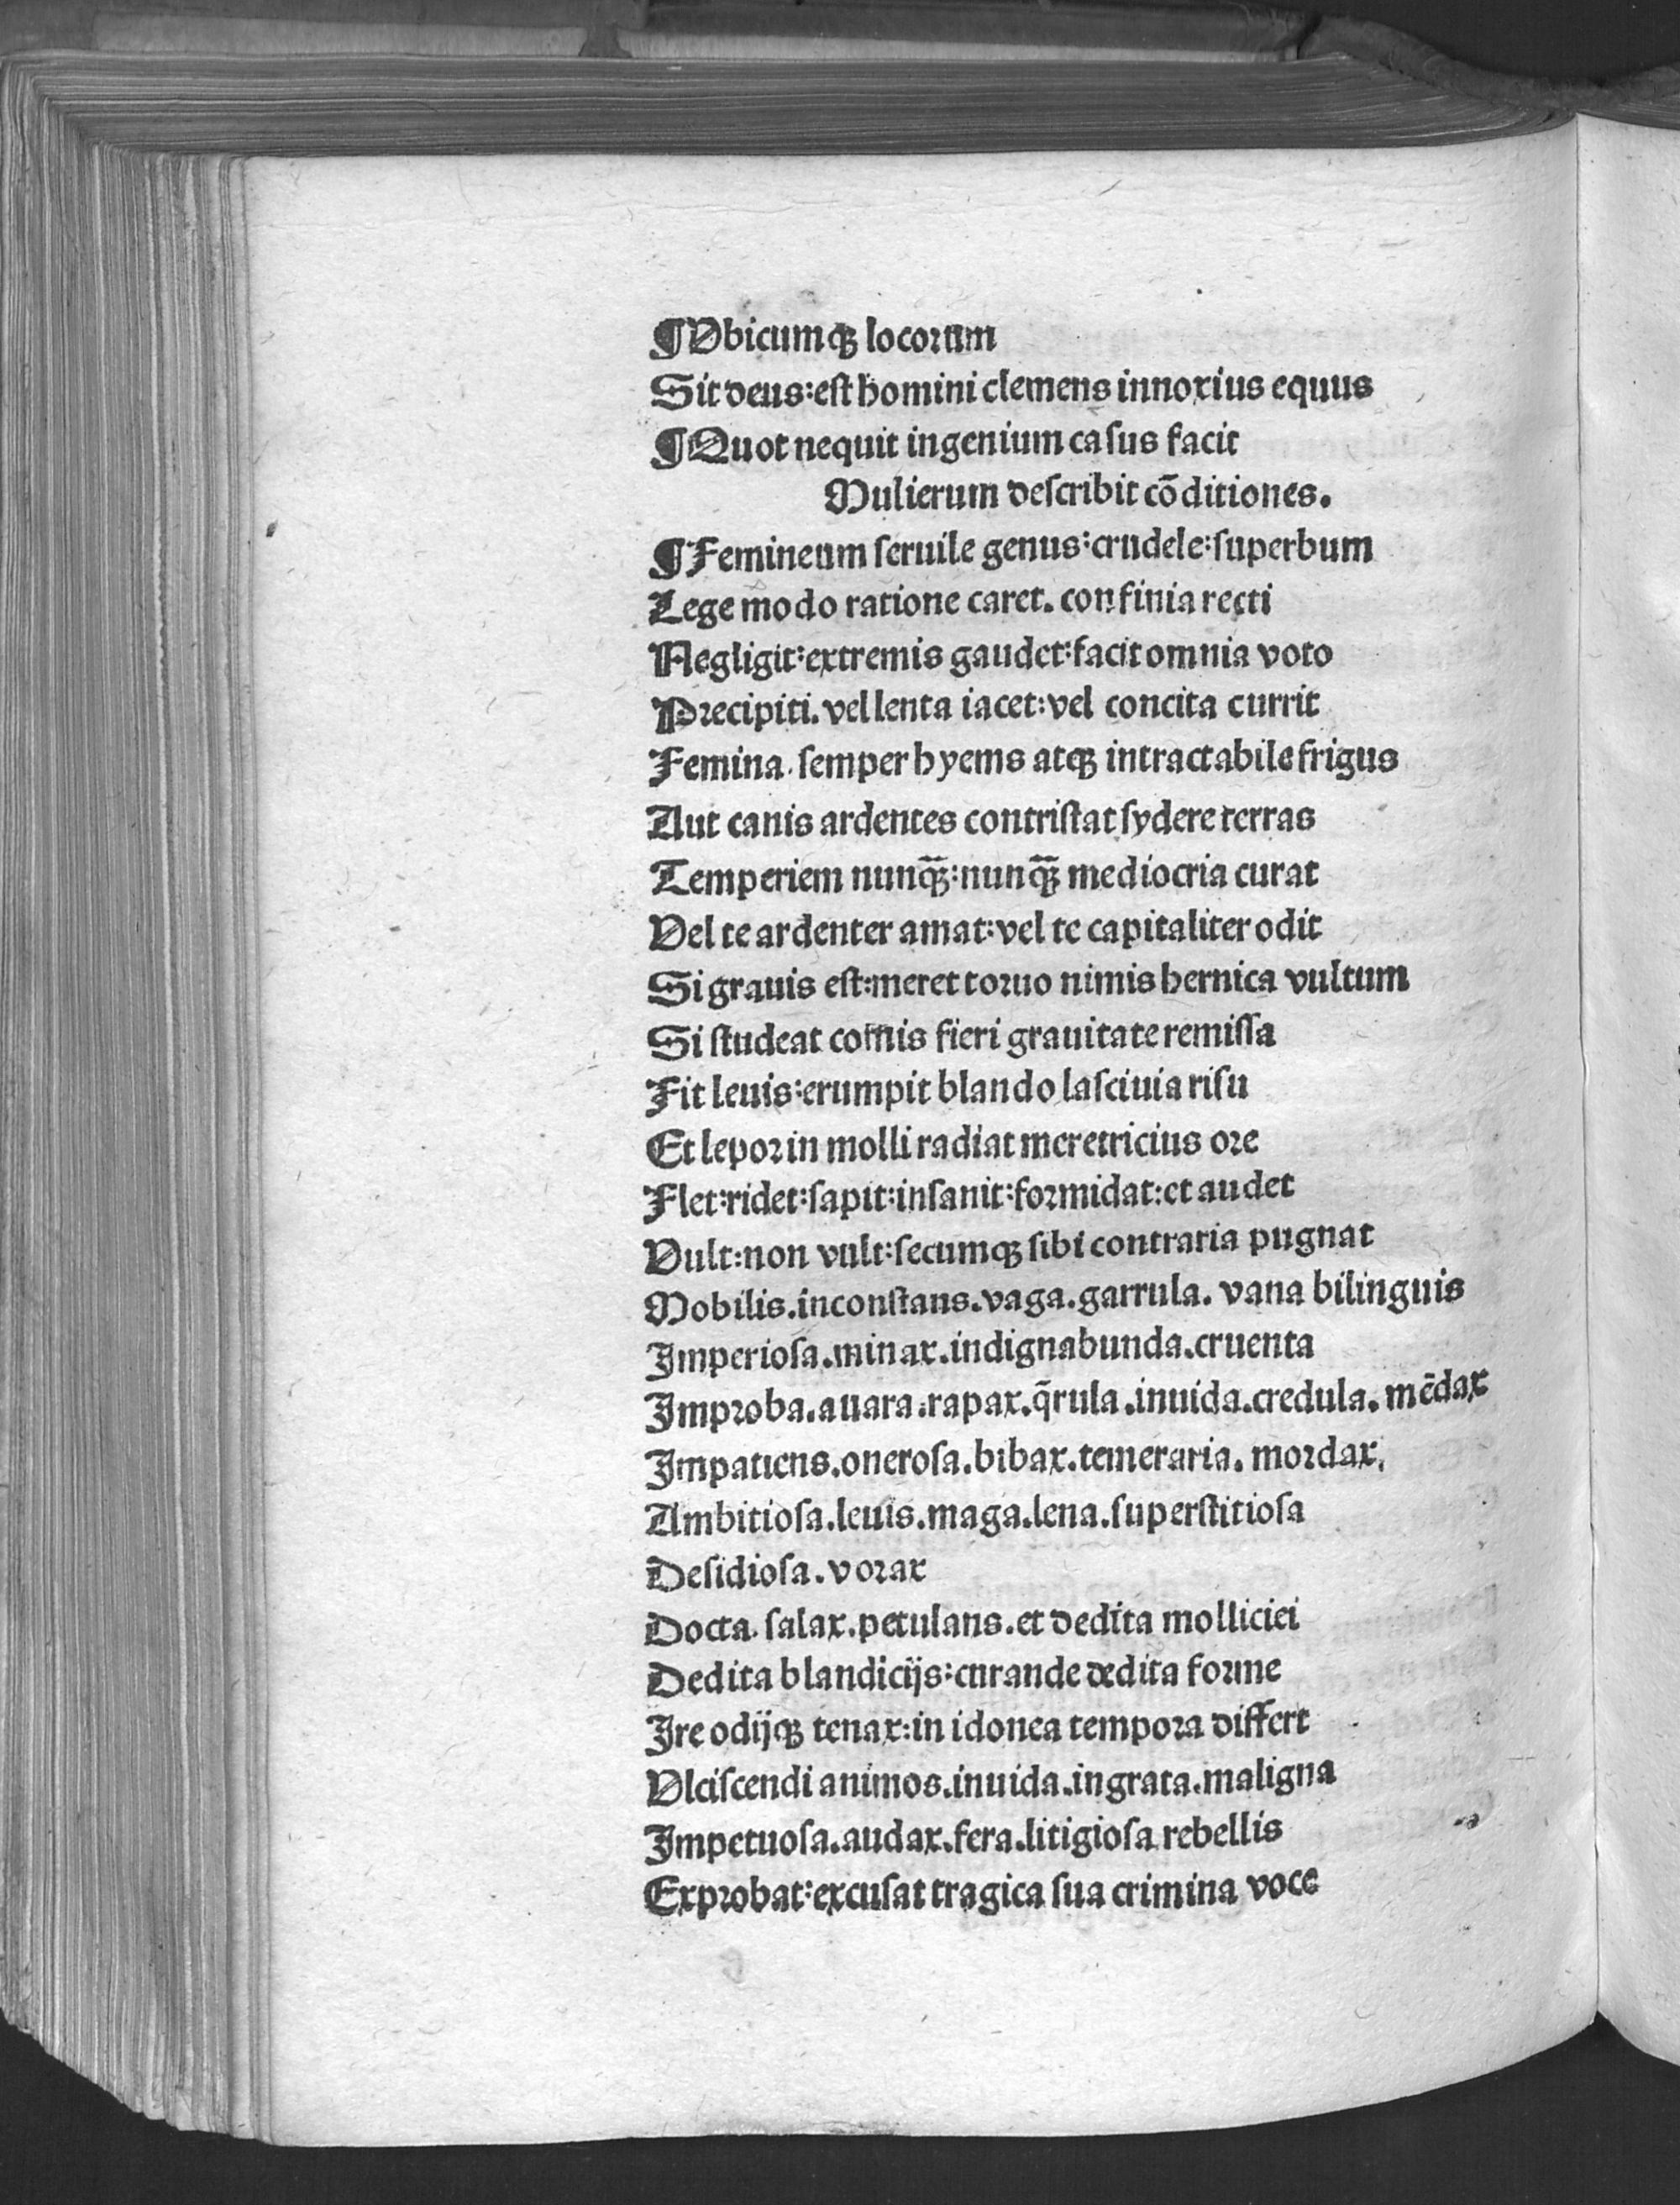 ¶Vbicumqꝫ locorum
Sit deus:est homini clemens innoxius equus
¶Quot nequit ingenium casus facit
Mulierum describit cōditiones.
¶Femineum seruile genus:crudele:superbum
Lege modo ratione caret. confinia recti
Negligit:extremis gaudet:facit omnia voto
Precipiti. vel lenta iacet:vel concita currit
Femina. semper hyems atqꝫ intractabile frigus
Aut canis ardentes contristat sydere terras
Temperiem nunq̄ꝫ:nunq̄ꝫ mediocria curat
Vel te ardenter amat:vel te capitaliter odit
Si grauis est:meret toruo nimis hernica vultum
Si studeat comis fieri grauitate remissa
Fit leuis:erumpit blando lasciuia risu
Et lepor in molli radiat meretricius ore
Flet:ridet:sapit:insanit:formidat:et audet
Vult:non vult:secumqꝫ sibi contraria pugnat
Mobilis.inconstans.vaga.garrula. vana bilinguis
Imperiosa.minax.indignabunda.cruenta
Improba.auara.rapax.q̄rula.inuida.credula. mēdax
Impatiens.onerosa.bibax.temeraria. mordax.
Ambitiosa.leuis.maga.lena.superstitiosa
Desidiosa.vorax
Docta. salax.petulans.et dedita molliciei
Dedita blandicijs:curande dedita forme
Ire odijqꝫ tenax:in idonea tempora differt
Vlciscendi animos.inuida.ingrata.maligna
Impetuosa.audax.fera.litigiosa rebellis
Exprobat:excusat tragica sua crimina voce